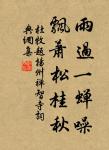 雨過一蟬噪
飄蕭松桂秋
杜牧題揚州禪智寺詞
典網集